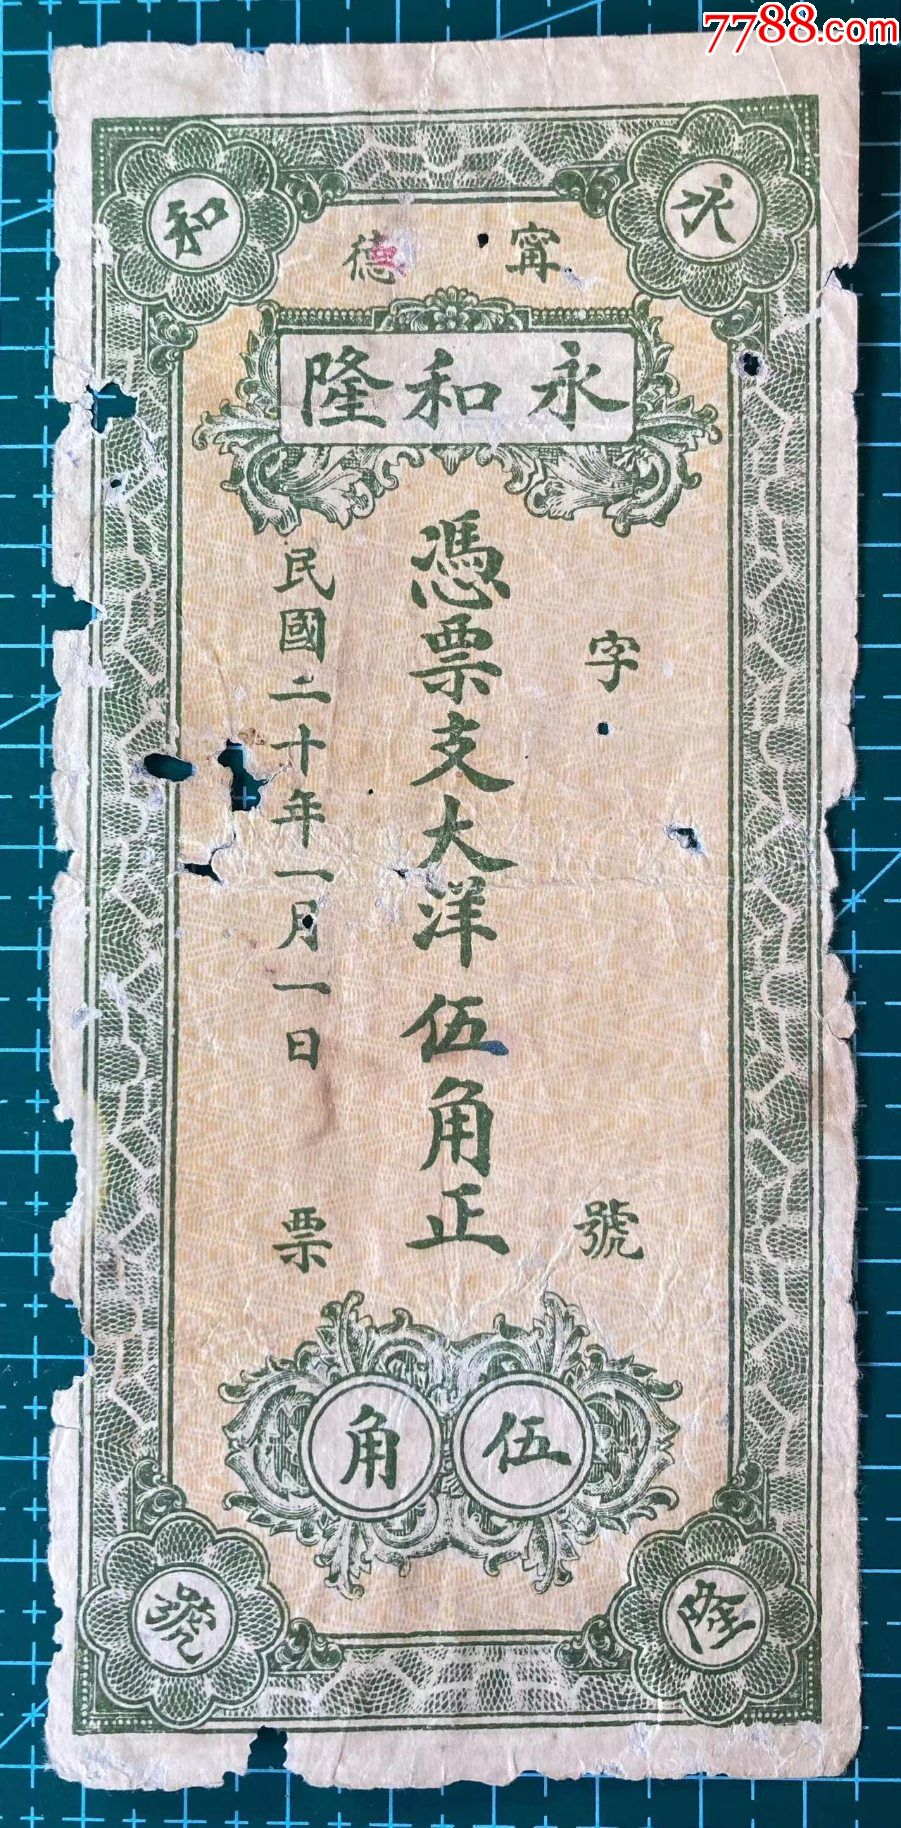 7788.com
永 和
甯 德
永和隆
字 號
憑票支大洋伍角正
民國二十年一月一日 票
伍 角
隆 號